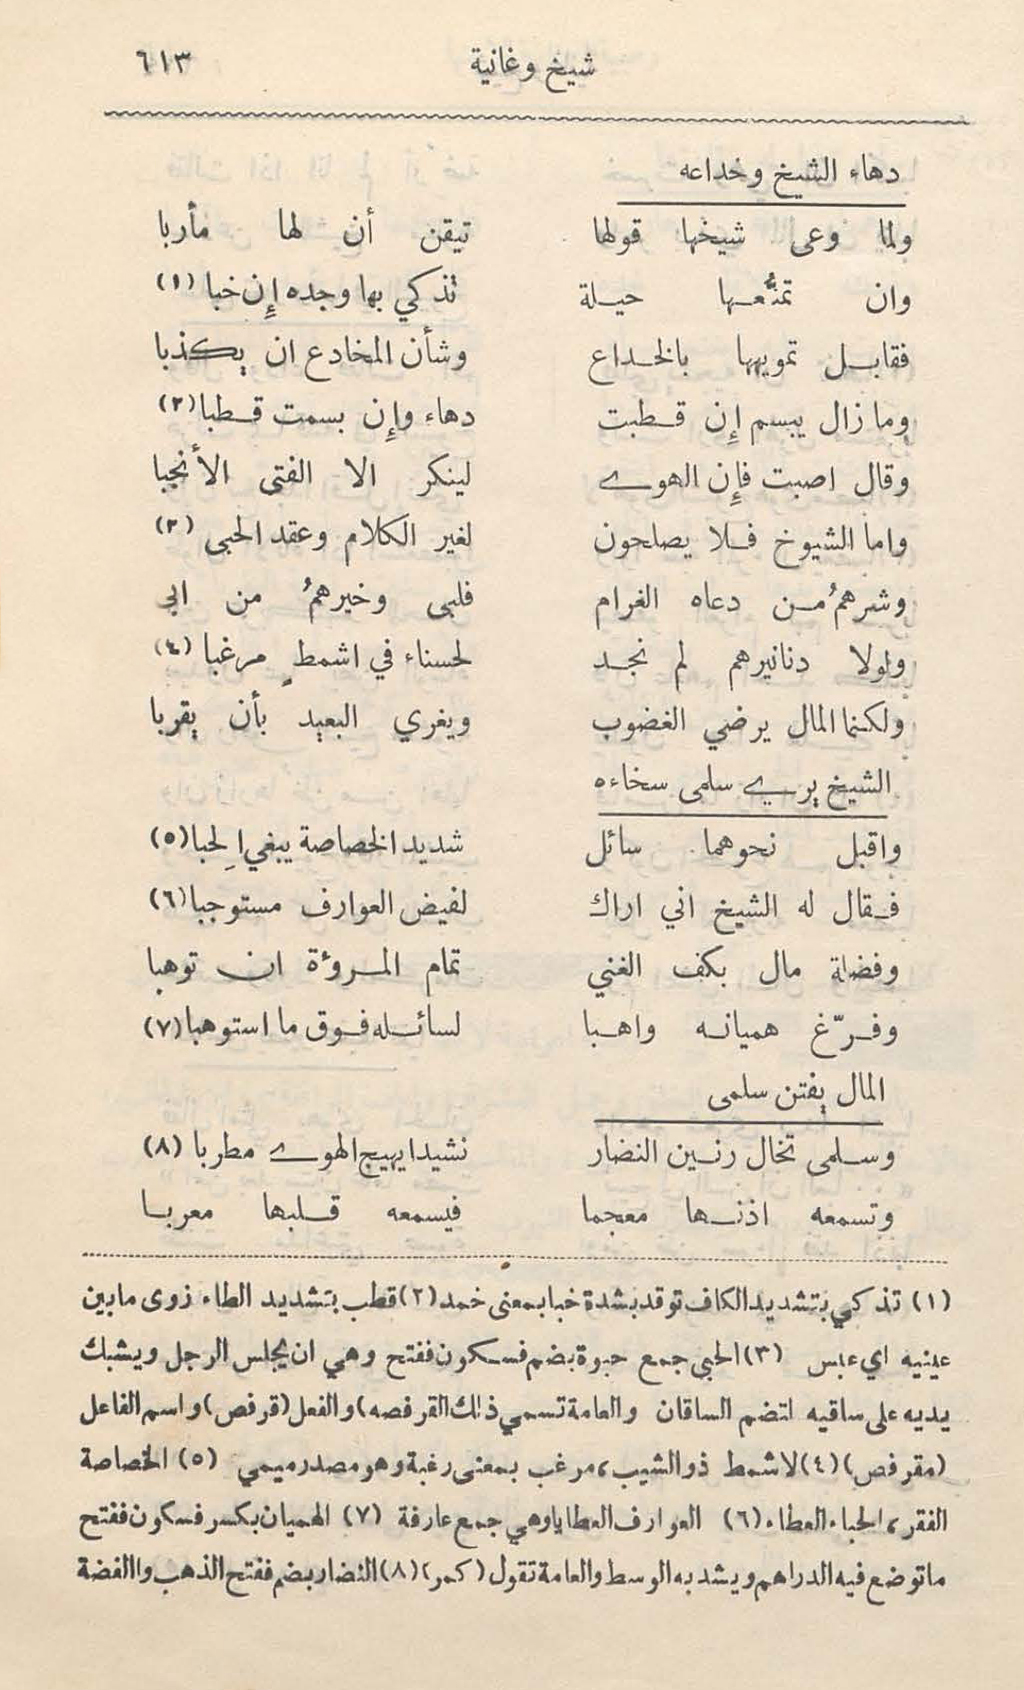 شيخ وغانية ٦١٣
دهاء الشيخ وخداعه
ولما وعى شيخها قولها تيقن أن لها مأربا
وان تمنُّعها حيلة تذكي بها وجده إِن خبا (١)
فقابل تمويهها بالخداع وشأن المخادع ان يكذبا
وما زال يبسم إِن قطبت دهاء وإِن بسمت قطبا (٢)
وقال اصبت فإِن الهوى لينكر الا الفتى الأنجبا
واما الشيوخ فلا يصلحون لغير الكلام وعقد الحبى (٣)
وشرهمُ من دعاه الغرام فلبى وخيرهمُ من ابى
ولولا دنانيرهم لم نجد لحسناء في اشمطٍ مرغبا (٤)
ولكنما المال يرضي الغضوب ويغري البعيد بأن يقربا
الشيخ يري سلمى سخاءه
واقبل نحوهما سائل شديد الخصاصة يبغي الحِبا (٥)
فقال له الشيخ اني اراك لفيض العوارف مستوجبا (٦)
وفضلة مال بكف الغني تمام المروءة ان توهبا
وفرّغ هميانه واهبا لسائله فوق ما استوهبا (٧)
المال يفتن سلمى
وسلمى تخال رنين النضار نشيدا يهيج الهوى مطربا (٨)
وتسمعه اذنها معجما فيسمعه قلبها معربا
(١) تذكي بتشديد الكاف توقد بشدة خبا بمعنى خمد (٢) قطب بتشديد الطاء زوى ما بين
عينيه اي عبس (٣) الحبى جمع حبوة بضم فسكون ففتح وهي ان يجلس الرجل ويشبك
يديه على ساقيه لتضم الساقان والعامة تسمي ذلك القرفصه) والفعل (قرفص) واسم الفاعل
(مقرفص) (٤) لاشمط ذو الشيب، مرغب بمعنى رغبة وهو مصدر ميمي (٥) الخصاصة
الفقر، الحباء العطاء (٦) العوارف العطايا وهي جمع عارفة (٧) الهميان بكسر فسكون ففتح
ما توضع فيه الدراهم ويشد به الوسط والعامة تقول (كمر) (٨) النضار بضم ففتح الذهب واالفضة